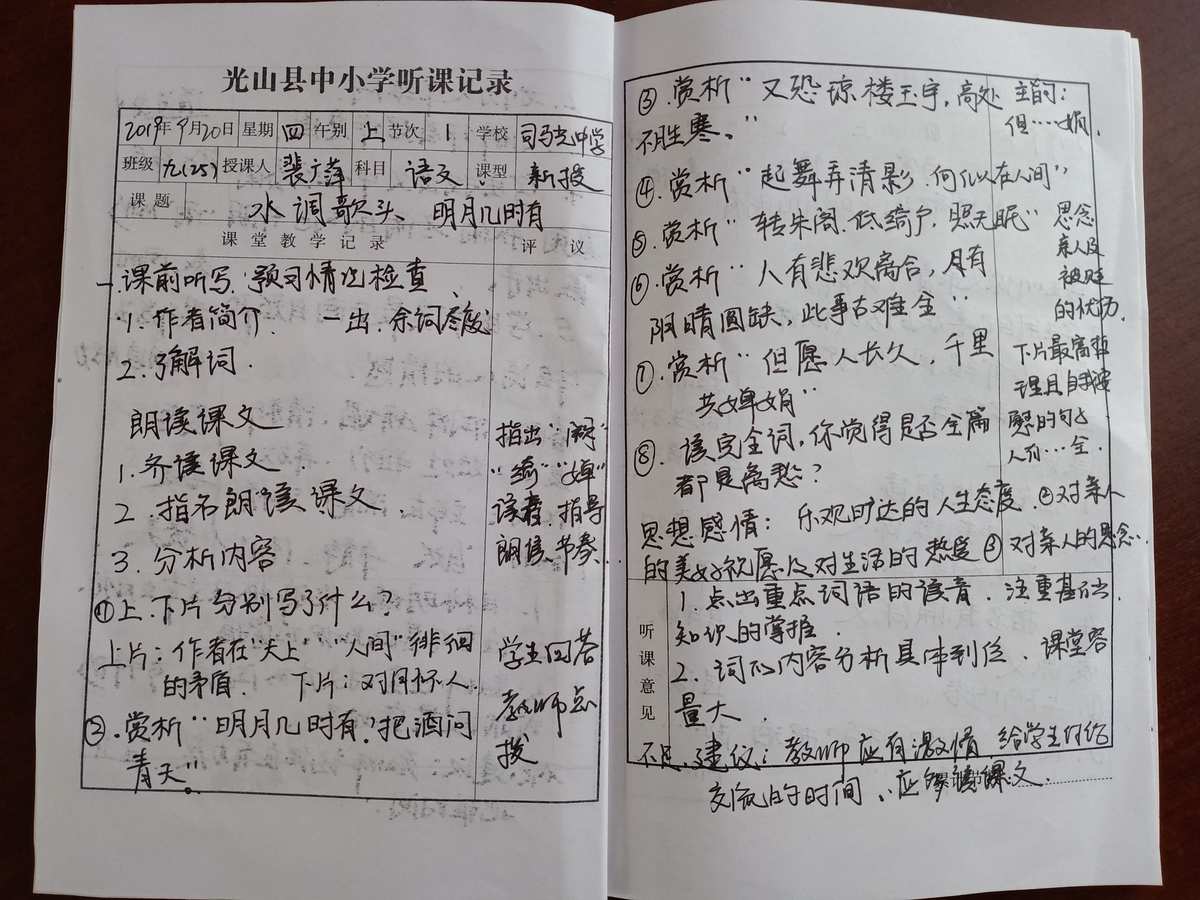 光山县中小学听课记录
2019年9月20日 星期 四 午别 上 节次 1 学校 司马光中学
班级 九(25) 授课人 裴广萍 科目 语文 课型 新授
课题 水调歌头、明月几时有
课堂教学记录 评议
一.课前听写、预习情况检查、
1.作者简介. 一出.
2.了解词.
朗读课文
1.齐读课文.
2.指名朗读课文.
3.分析内容
①上.下片分别写了什么?
上片:作者在"天上""人间"徘徊
的矛盾. 下片:对月怀人.
②.赏析"明月几时有?把酒问
青天"。
指出"阙"
"绮""婵"
读音.指导
朗读.节奏...
学生回答
教师点
拨
③.赏析"又恐琼楼玉宇,高处
不胜寒。"
④.赏析"起舞弄清影.何似在人间"
⑤.赏析"转朱阁.低绮户,照无眠"
⑥.赏析"人有悲欢离合,月有
阴晴圆缺,此事古难全"
⑦.赏析"但愿人长久,千里
共婵娟"
⑧.读完全词,你觉得是否全篇
都是离愁?
主旨的:
但……娟.
思念
亲人及
被贬
的忧伤.
下片最富哲
理且自我安
慰的句子
人有…全.
思想感情: 乐观旷达的人生态度.②对亲人
的美好祝愿及对生活的热爱③对亲人的思念..
听课意见
1.点出重点词语的读音.注重基础
知识的掌握.
2.词的内容分析具体到位.课堂容
量大.
不足.建议:教师应有激情 给学生
交流的时间..应多读课文.